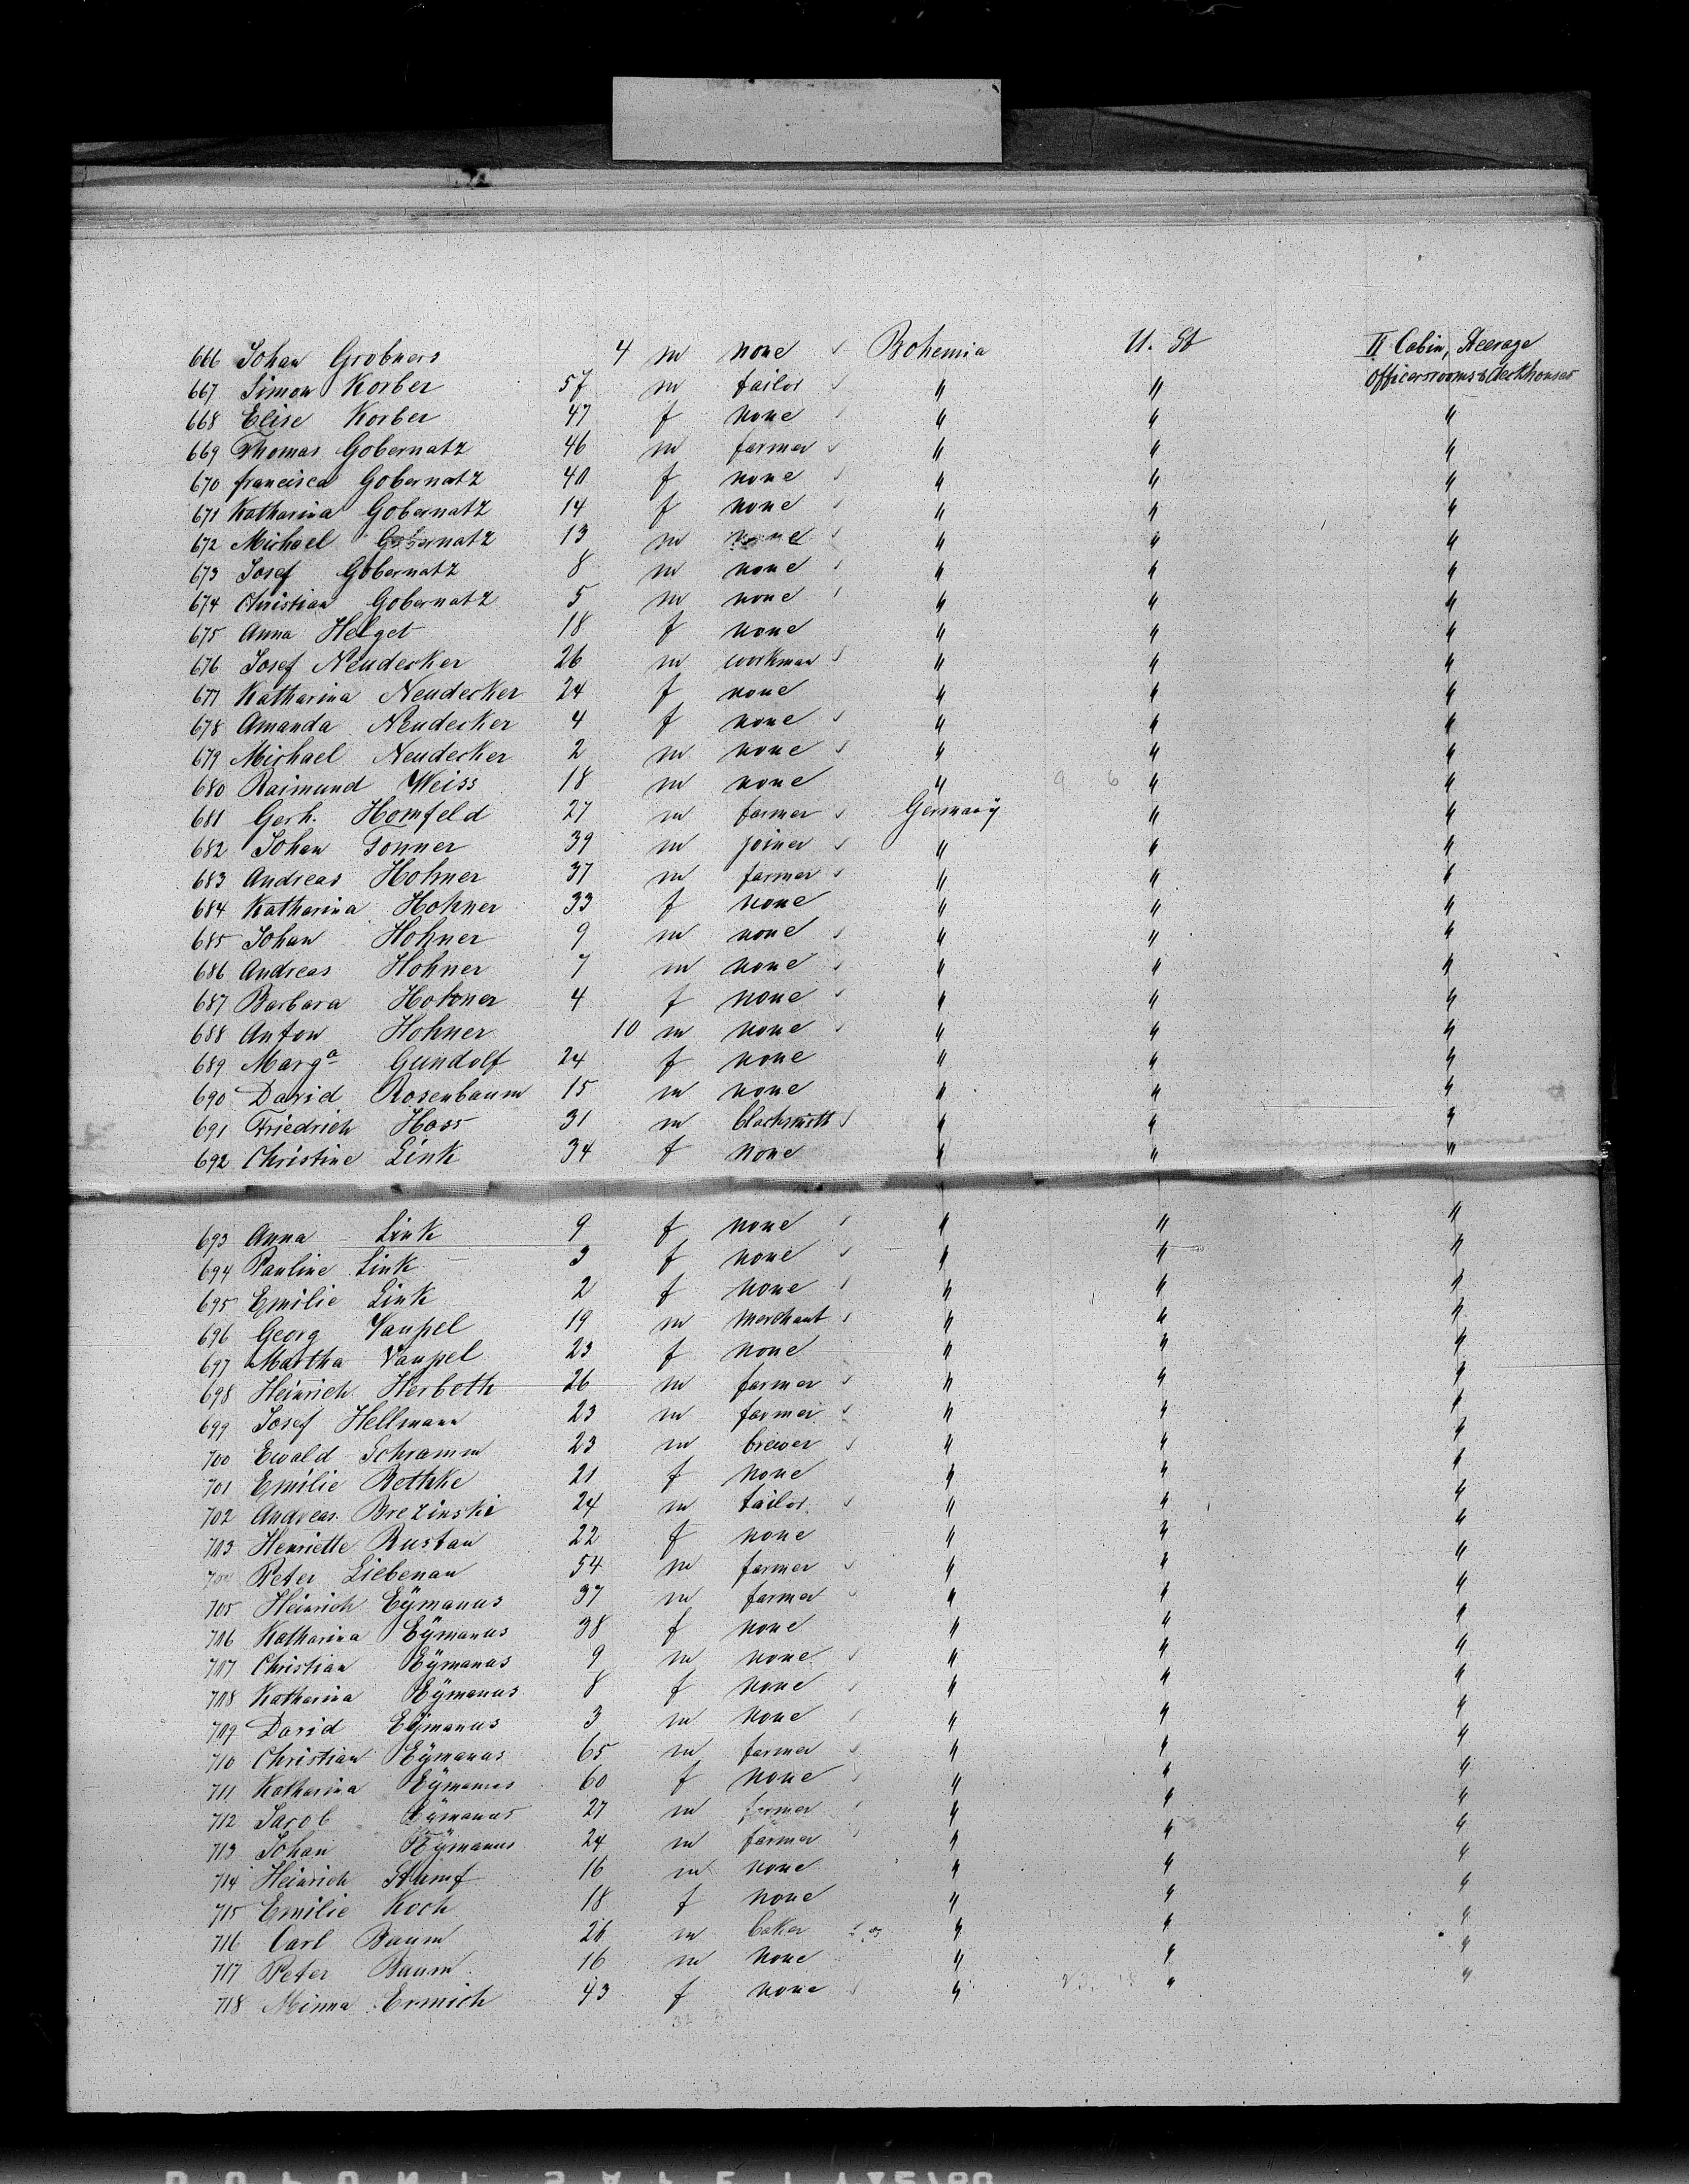 666 Johan Grobners 4 m none Bohemia U. St II Cabin, Steerage
667 Simon Korber 57 m tailor " " Officersrooms & deckhouses
668 Elise Korber 47 f none " " "
669 Thomas Gobernatz 46 m farmer " " "
670 francisca Gobernatz 40 f none " " "
671 Katharina Gobernatz 14 f none " " "
672 Michael Gobernatz 13 m none " " "
673 Josef Gobernatz 8 m none " " "
674 Christian Gobernatz 5 m none " " "
675 Anna Helget 18 f none " " "
676 Josef Neudecker 26 m workman " " "
677 Katharina Neudecker 24 f none " " "
678 Amanda Neudecker 4 f none " " "
679 Michael Neudecker 2 m none " " "
680 Raimund Weiss 18 m none " 9 6 " "
681 Gerh. Homfeld 27 m farmer Germany " "
682 Johan Tonner 39 m joiner " " "
683 Andreas Hohner 37 m farmer " " "
684 Katharina Hohner 33 f none " " "
685 Johan Hohner 9 m none " " "
686 Andreas Hohner 7 m none " " "
687 Barbara Hohner 4 f none " " "
688 Anton Hohner 10 m none " " "
689 Marga Gundolf 24 f none " " "
690 David Rosenbaum 15 m none " " "
691 Friedrich Hoss 31 m blacksmith " " "
692 Christine Link 34 f none " " "
693 Anna Link 9 f none " " "
694 Pauline Link 3 f none " " "
695 Emilie Link 2 f none " " "
696 Georg Vaupel 19 m merchant " " "
697 Martha Vaupel 23 f none " " "
698 Heinrich Herboth 26 m farmer " " "
699 Josef Hellmann 23 m farmer " " "
700 Ewald Schramm 23 m brewer " " "
701 Emilie Bethke 21 f none " " "
702 Andreas Brezinski 24 m tailor " " "
703 Henriette Rustau 22 f none " " "
704 Peter Liebenau 54 m farmer " " "
705 Heinrich Eÿmanns 37 m farmer " " "
706 Katharina Eÿmanns 38 f none " " "
707 Christian Eÿmanns 9 m none " " "
708 Katharina Eÿmanns 8 f none " " "
709 David Eÿmanns 3 m none " " "
710 Christian Eÿmanns 65 m farmer " " "
711 Katharina Eÿmanns 60 f none " " "
712 Jacob Eÿmanns 27 m farmer " " "
713 Johan Eÿmanns 24 m farmer " " "
714 Heinrich Stumf 16 m none " " "
715 Emilie Koch 18 f none " " "
716 Carl Baum 26 m baker " " "
717 Peter Baum 16 m none " " "
718 Minna Ermich 43 f none " " "